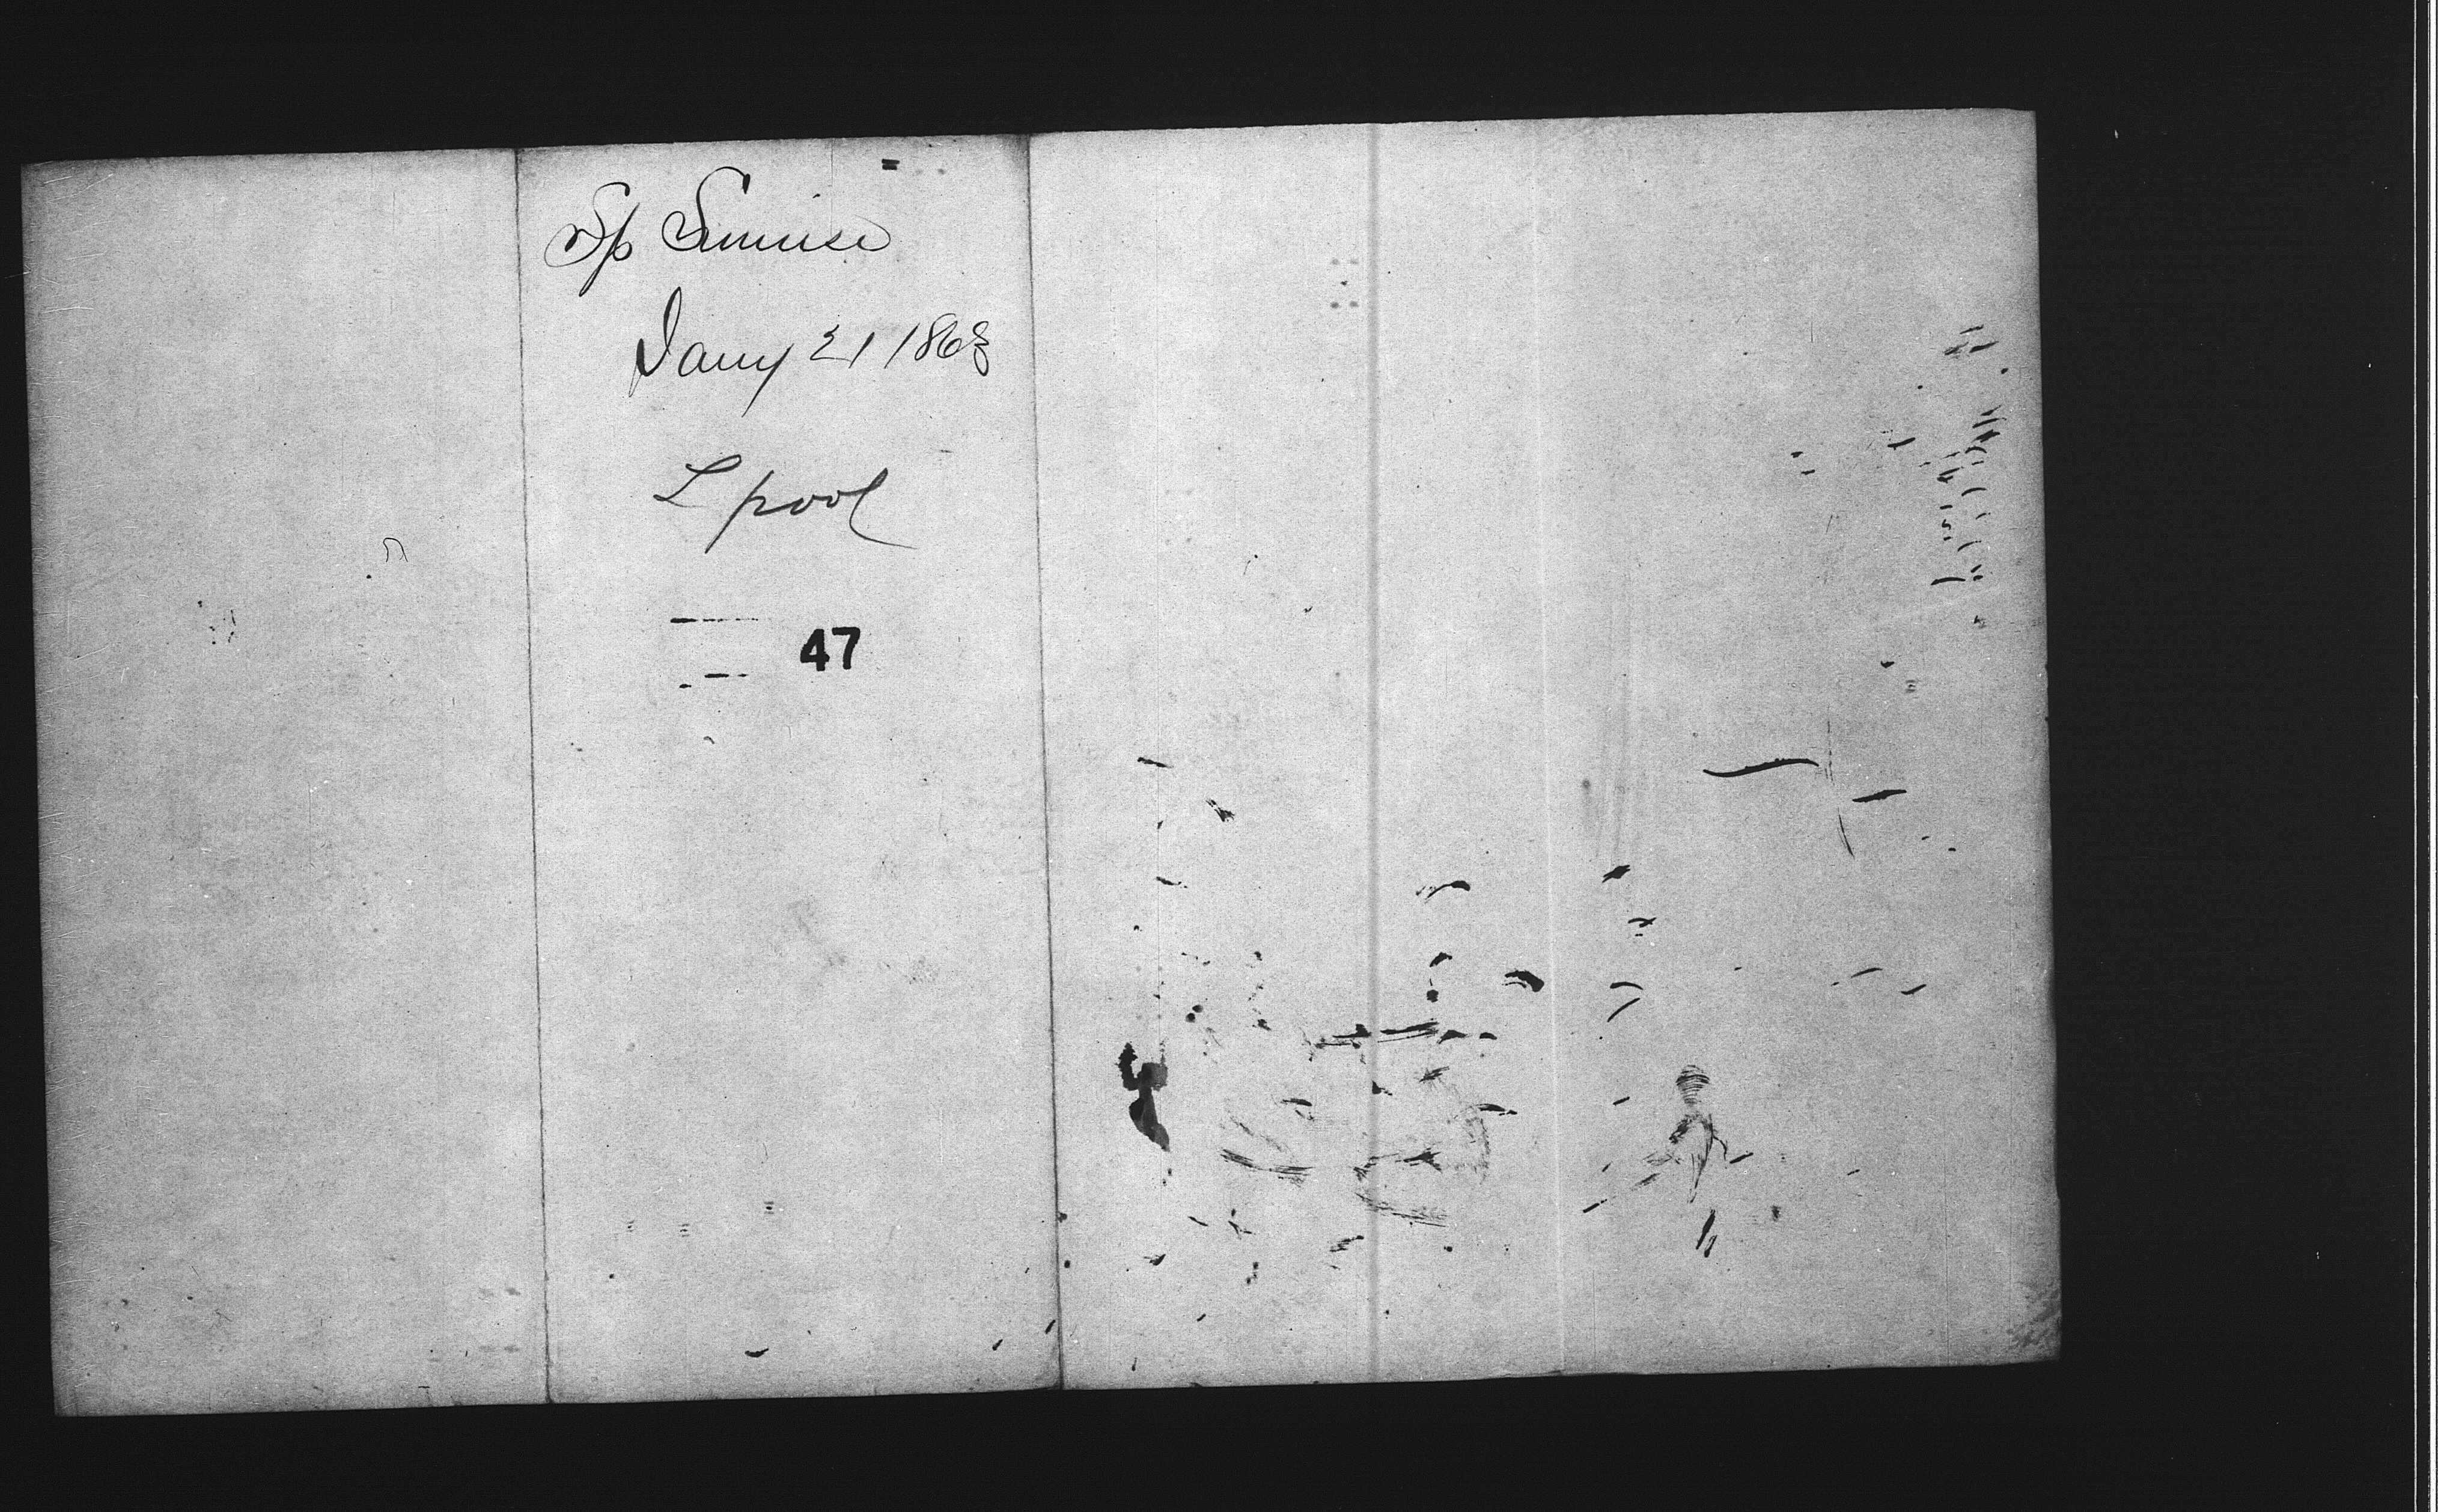 Sp Sunrise
Jany 21 1863
L pool
47